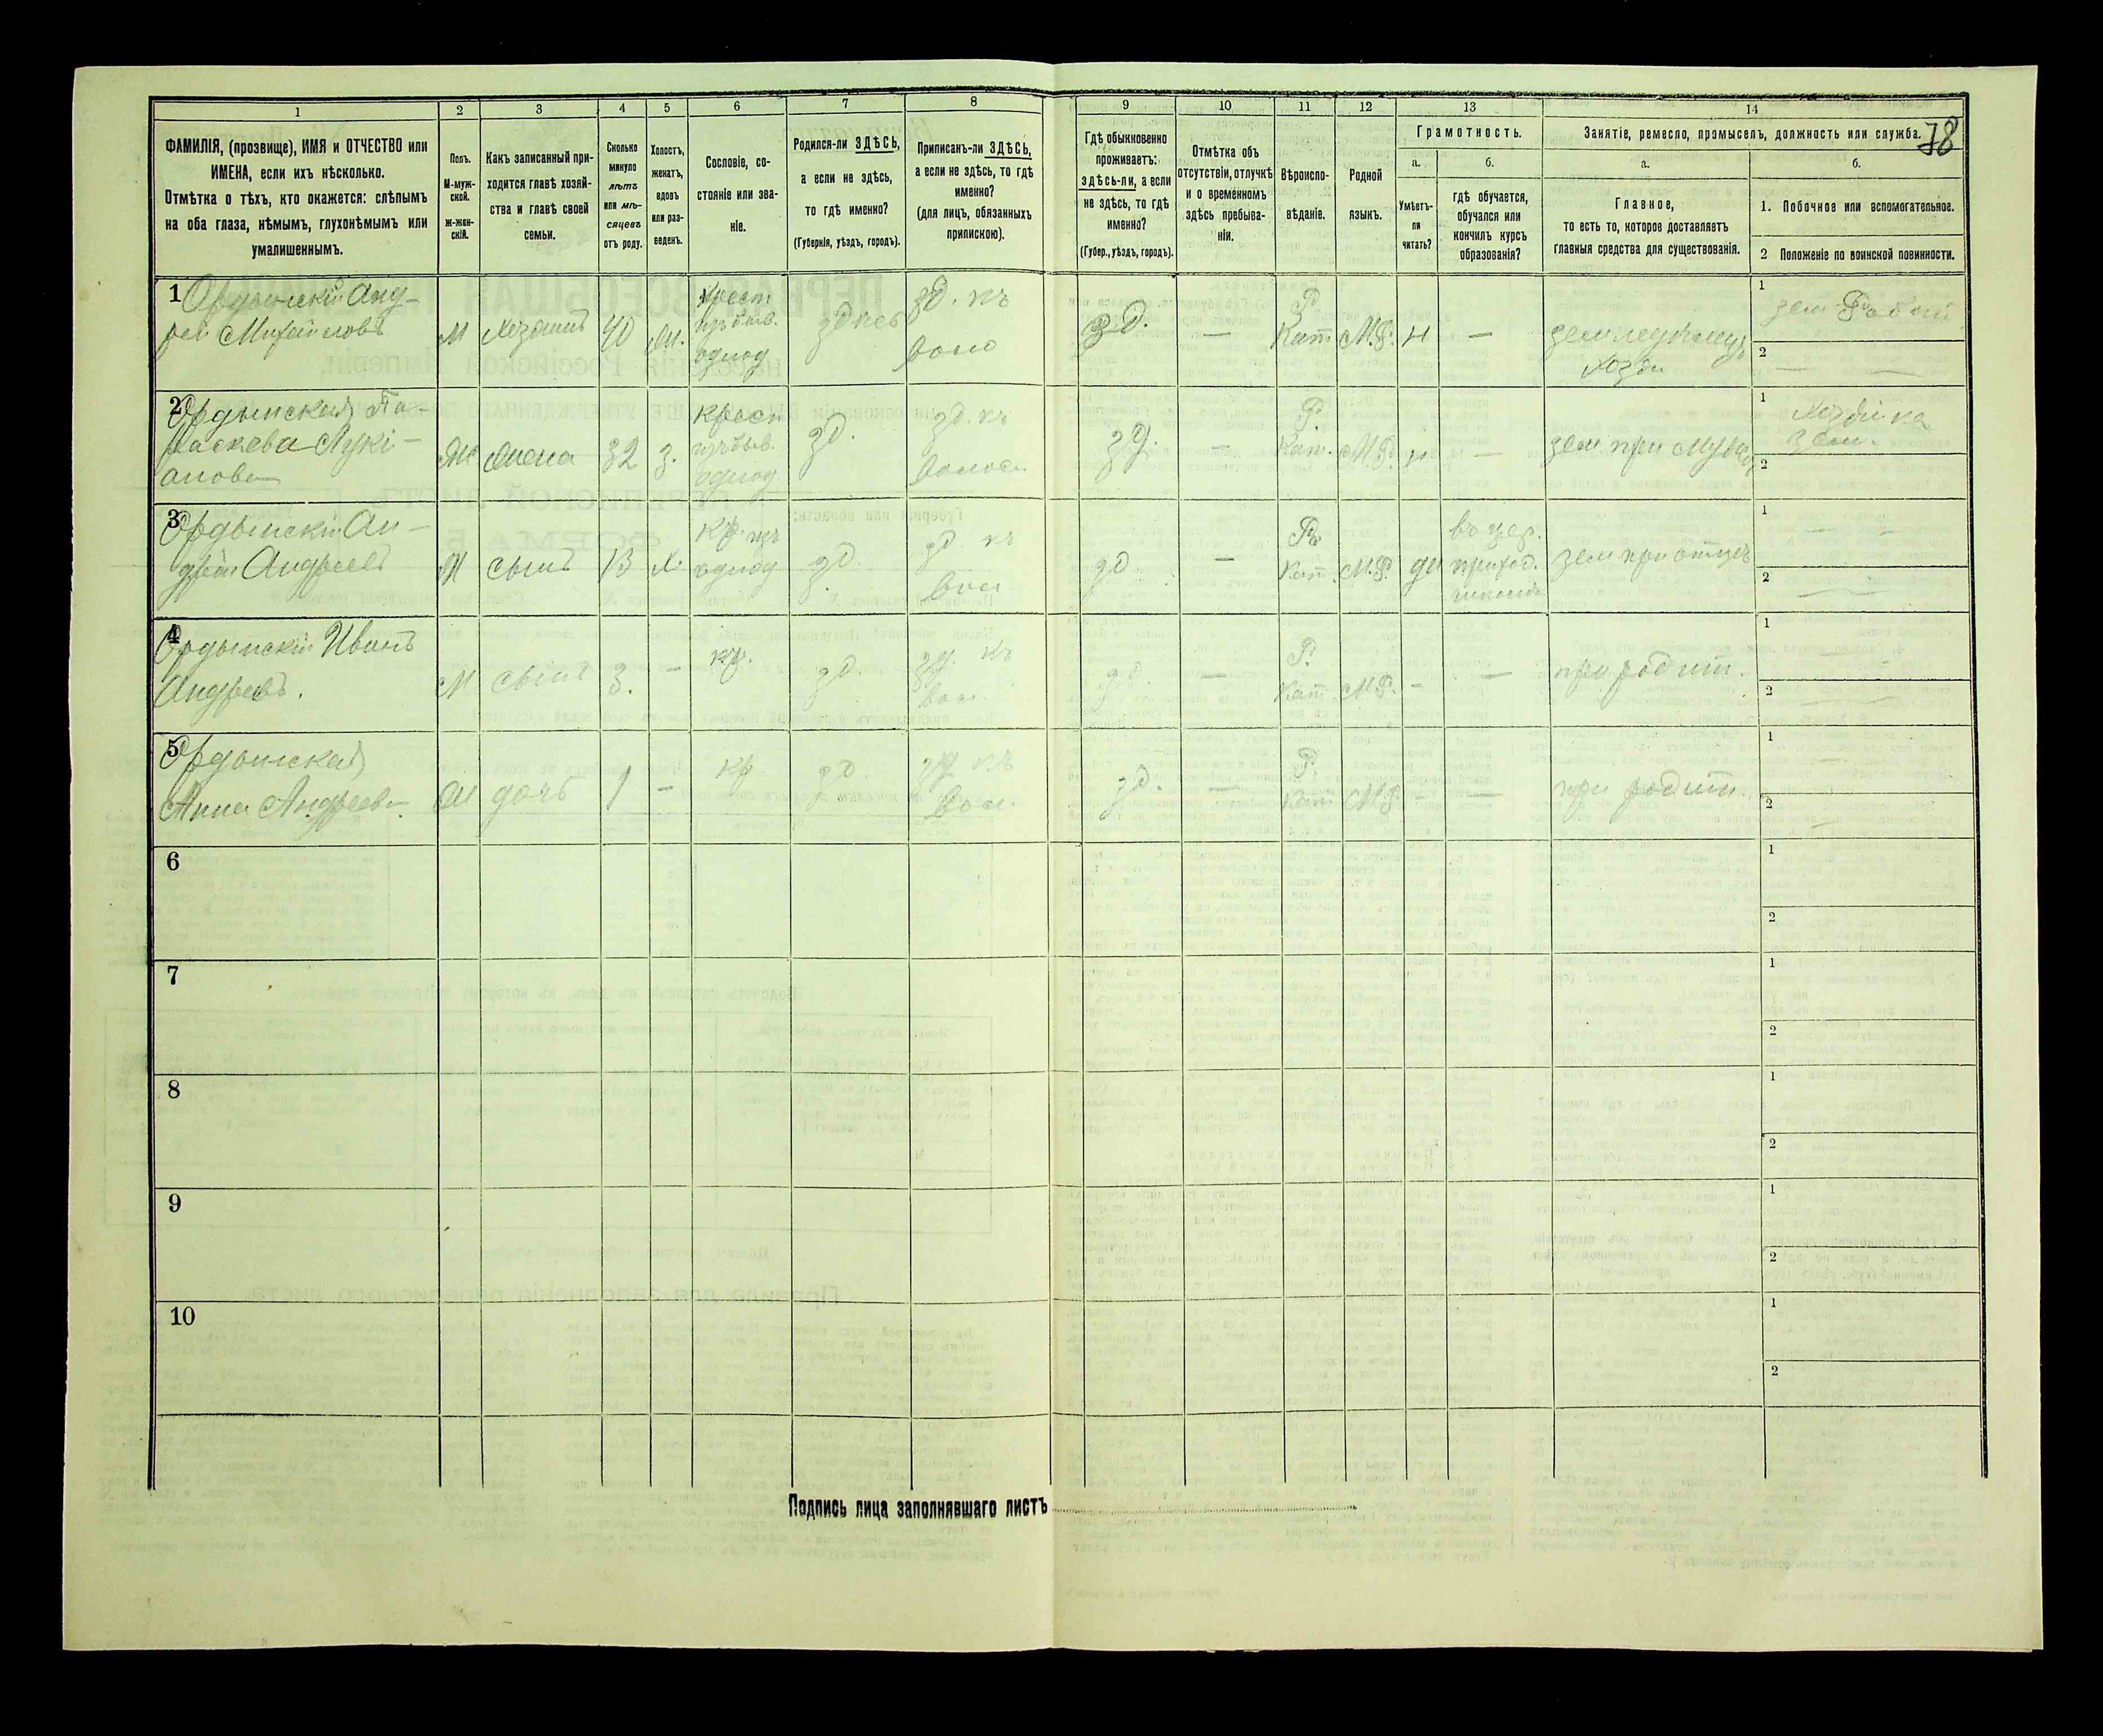 1
2
3
4
5
6
7
8
9
10
11
12
13
14
78
ФАМИЛІЯ, (прозвище), ИМЯ и ОТЧЕСТВО или
ИМЕНА, если ихъ нѣсколько.
Отмѣтка о тѣхъ, кто окажется: слѣпымъ
на оба глаза, нѣмымъ, глухонѣмымъ или
умалишеннымъ.
Полъ.
М-муж-
ской.
Ж-жен-
скій.
Какъ записанный при-
ходится главѣ хозяй-
ства и главѣ своей
семьи.
Сколько
минуло
лѣтъ
или мѣ-
сяцевъ
отъ роду.
Холостъ,
женатъ,
вдовъ
или раз-
веденъ.
Сословіе, со-
стояніе или зва-
ніе.
Родился-ли ЗДѢСЬ,
а если не здѣсь,
то гдѣ именно?
(Губернія, уѣздъ, городъ).
Приписанъ-ли ЗДѢСЬ,
а если не здѣсь, то гдѣ
именно?
(для лицъ, обязанныхъ
припискою).
Гдѣ обыкновенно
проживаетъ:
здѣсь-ли, а если
не здѣсь, то гдѣ
именно?
(Губер., уѣздъ, городъ).
Отмѣтка объ
отсутствіи, отлучкѣ
и о временномъ
здѣсь пребыва-
ніи.
Вѣроиспо-
вѣданіе.
Родной
языкъ.
Грамотность.
а.
б.
Умѣетъ-
ли
читать?
гдѣ обучается,
обучался или
кончилъ курсъ
образованія?
Занятіе, ремесло, промыселъ, должность или служба.
а.
б.
Главное,
то есть то, которое доставляетъ
главныя средства для существованія.
1. Побочное или вспомогательное.
2 Положеніе по воинской повинности.
1 Ордынскій Анд-
рей Михайловъ
М
хозяинъ
40
жен.
крест
изъ быв.
однод
зд. къ
воло
з.д.
—
Р.
Кат
М.Р.
н
—
хозя
1
2
2 Ордынская Па-
раскева Лукі-
анова
Ж
жена
32
з.
крест
изъ быв.
однод
зд.
зд. къ
волос.
зд.
—
Р.
Кат.
М.Р.
н
—
зем. при мужѣ
1 Хозяйка
зем.
2
3 Ордынскій Ан-
дрей Андреевъ
М
сынъ
13
х.
кр. изъ
однод
зд.
зд. къ
вол
зд
—
Р.
Кат.
М.Р.
да
въ цер.
приход.
зем при отцѣ
1
2
4 Ордынскій Иванъ
Андреевъ.
М
сынъ
3.
—
кр.
зд.
зд. къ
вол.
зд.
—
Р.
Кат
М.Р.
—
—
при родит.
1
2
5 Ордынская
Анна Андреева
Ж
дочь
1
—
кр
зд.
зд къ
вол.
зд.
—
Р.
Кат
М.Р.
—
—
при родит.
1
2
6
1
2
7
1
2
8
1
2
9
1
2
10
1
2
Подпись лица заполнявшаго листъ